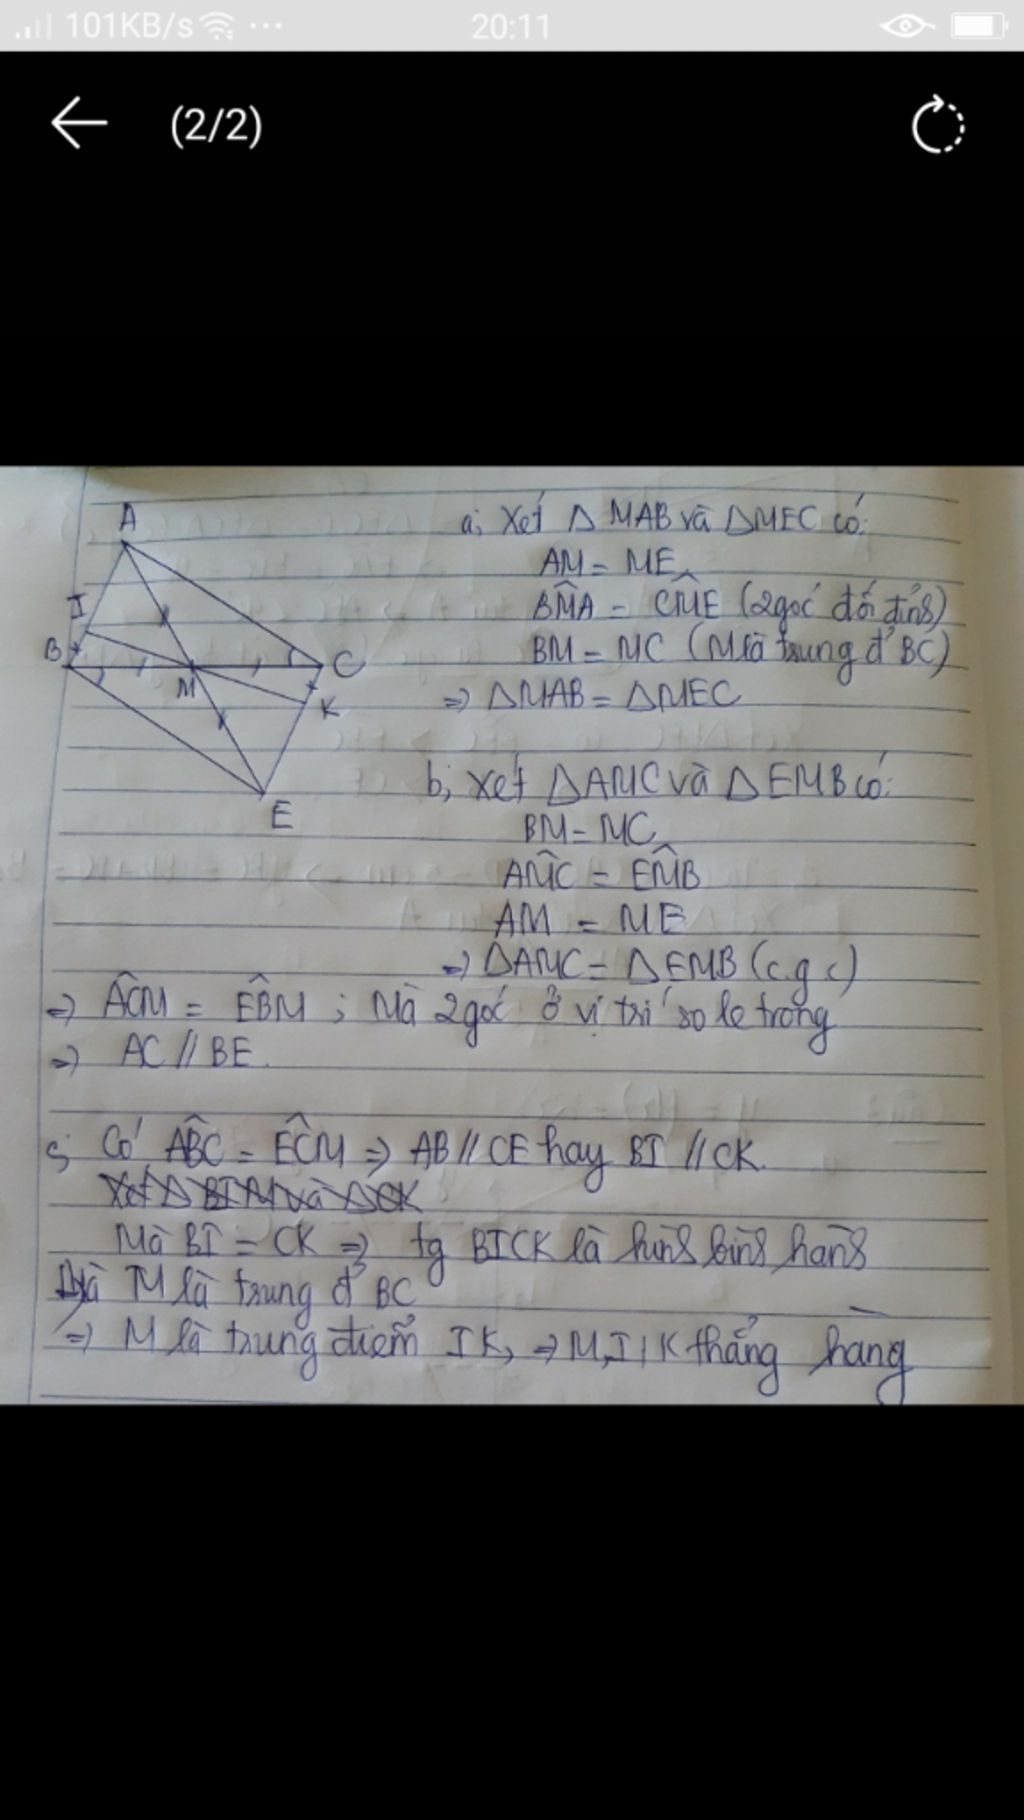 101KB/s ... 20:11
(2/2)
A
I
B
C
M
K
E
a, Xét Δ MAB và ΔMEC có:
AM = ME
BM̂A = CM̂E (2 góc đối đỉnh)
BM = MC (M là trung đ' BC)
=> ΔMAB = ΔMEC
b, Xét ΔAMC và ΔEMB có:
BM = MC
AM̂C = EM̂B
AM = ME
=> ΔAMC = ΔEMB (c.g.c)
=> AĈM = EB̂M ; Mà 2 góc ở vị trí so le trong
=> AC // BE.
c, Có AB̂C = EĈM => AB // CE hay BI // CK.
Xét Δ BIM và Δ CK
Mà BI = CK => tg BICK là hình bình hành
Mà M là trung đ' BC
=> M là trung điểm IK, => M, I, K thẳng hàng